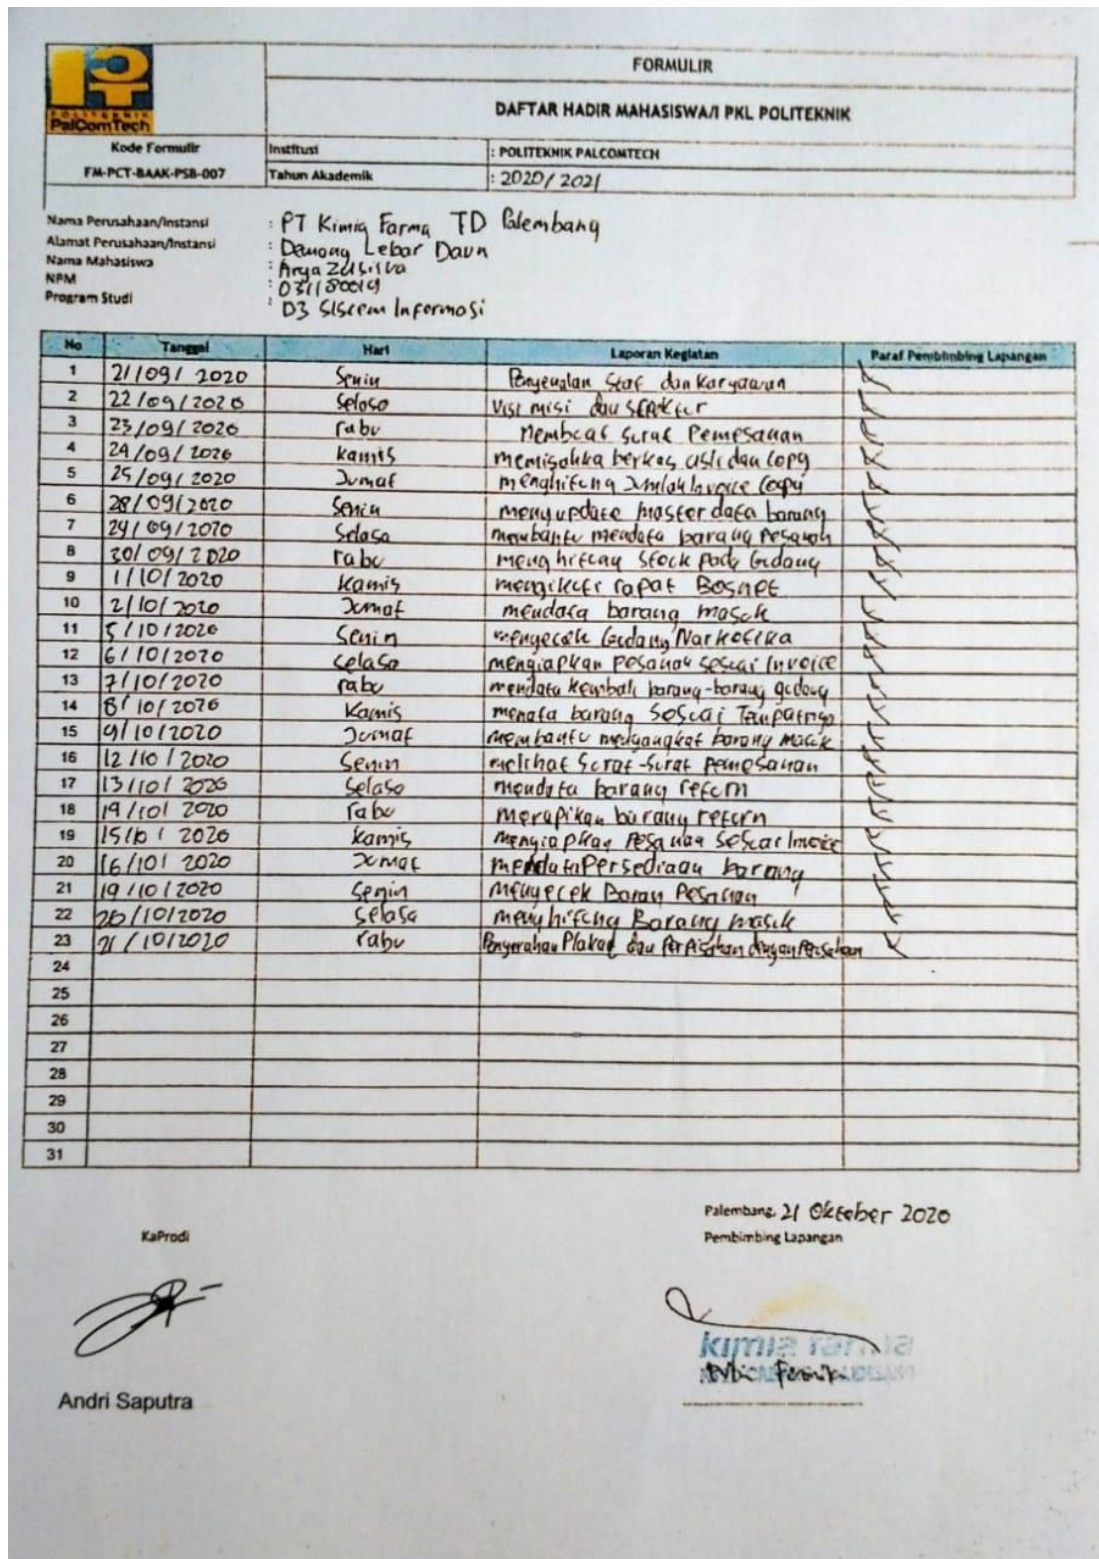 POLITEKNIK
PalComTech
FORMULIR
DAFTAR HADIR MAHASISWA/I PKL POLITEKNIK
Kode Formulir
FM-PCT-BAAK-PSB-007
Institusi : POLITEKNIK PALCOMTECH
Tahun Akademik : 2020/2021
Nama Perusahaan/Instansi : PT Kimia Farma TD Palembang
Alamat Perusahaan/Instansi : Demang Lebar Daun
Nama Mahasiswa : Arya
NPM :
Program Studi : D3 Sistem Informasi
No Tanggal Hari Laporan Kegiatan Paraf Pembimbing Lapangan
1 21/09/2020 Senin Pengenalan Staf dan Karyawan
2 22/09/2020 Selasa Visi misi dan
3 23/09/2020 rabu Membuat Surat Pemesanan
4 24/09/2020 kamis memisahka berkas asli dan Copy
5 25/09/2020 Jumat menghitung Jumlah Invoice Copy
6 28/09/2020 Senin mengupdate master data barang
7 29/09/2020 Selasa membantu mendata barang Pesanan
8 30/09/2020 rabu menghitung Stock pada Gudang
9 1/10/2020 Kamis mengikuti rapat
10 2/10/2020 Jumat mendata barang masuk
11 5/10/2020 Senin mengecek Gudang Narkotika
12 6/10/2020 Selasa mengiapkan Pesanan sesuai Invoice
13 7/10/2020 rabu mendata kembali barang-barang gudang
14 8/10/2020 Kamis menata barang Sesuai Tempatnya
15 9/10/2020 Jumat membantu mengangkat barang masuk
16 12/10/2020 Senin melihat Surat-Surat Pemesanan
17 13/10/2020 Selasa mendata barang return
18 14/10/2020 rabu merapikan barang return
19 15/10/2020 kamis mengiapkan Pesanan Sesuai Invoice
20 16/10/2020 Jumat mendata Persediaan barang
21 19/10/2020 Senin mengecek Baran Pesanan
22 20/10/2020 Selasa menghitung Barang masuk
23 21/10/2020 rabu Penyerahan Plakat dan Perpisahan dengan Perusahaan
24
25
26
27
28
29
30
31
Palembang, 21 Oktober 2020
KaProdi
Pembimbing Lapangan
kimia farma
Andri Saputra